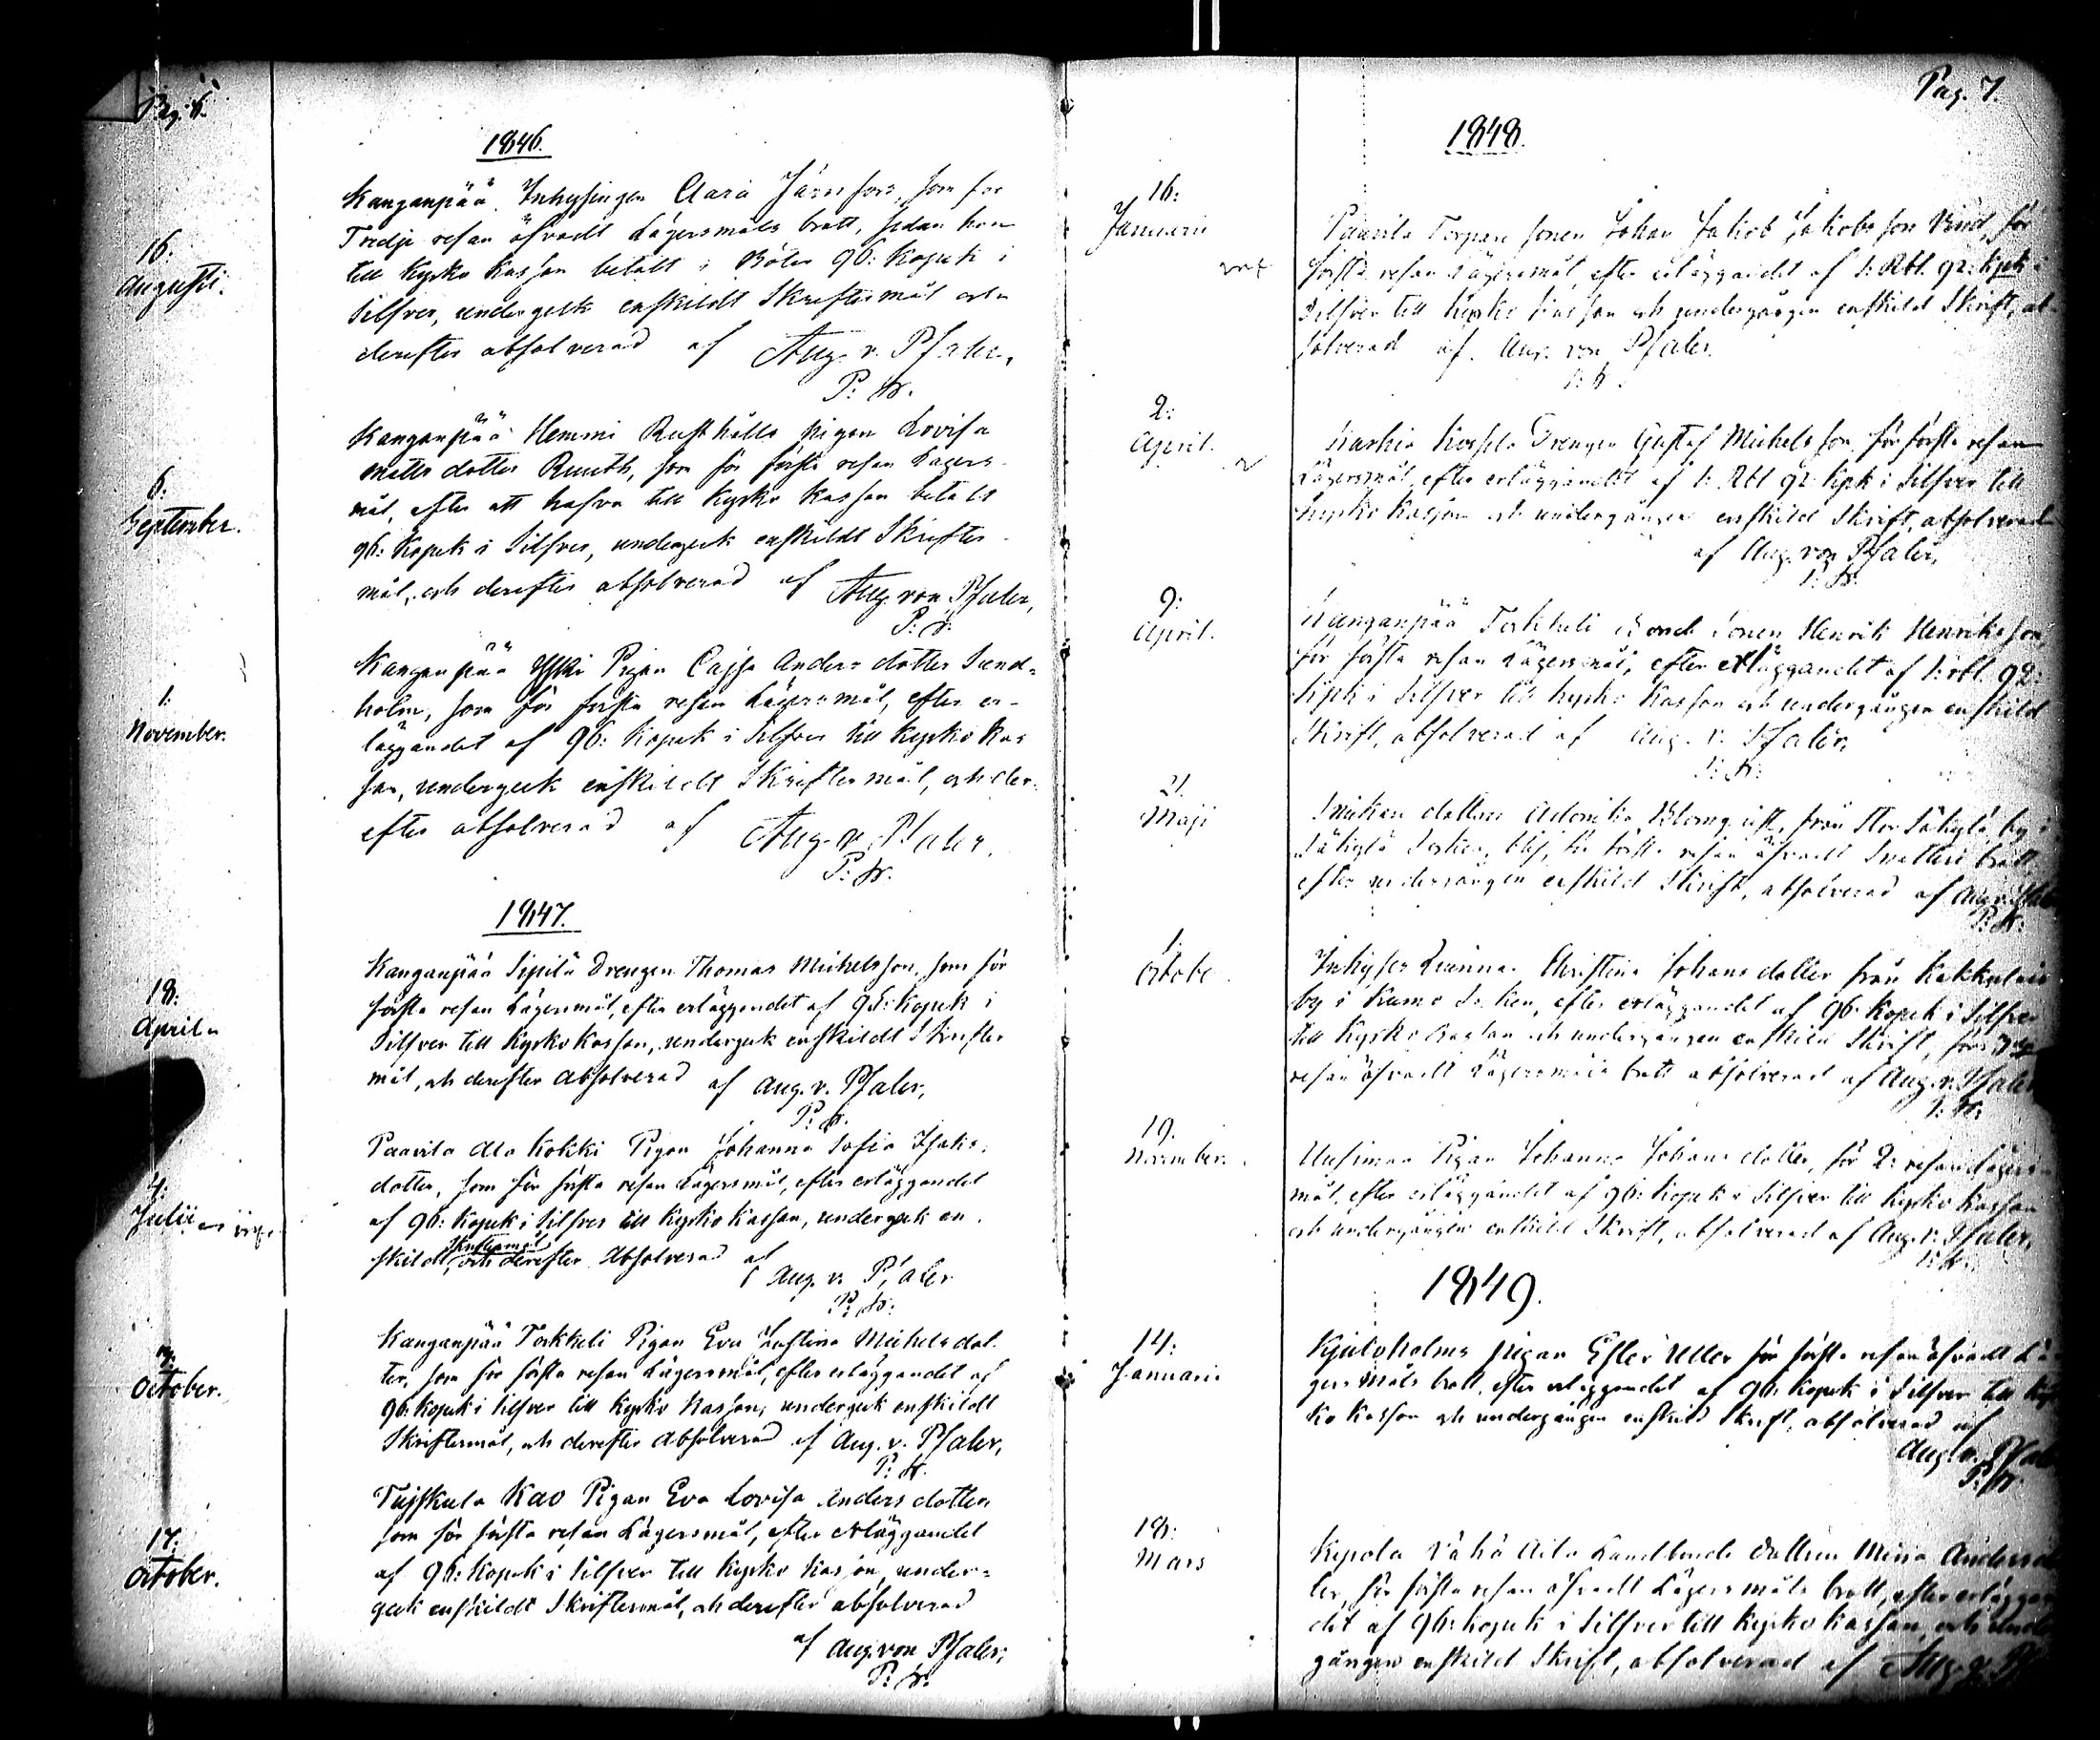 Pag. 6.
1846.
16:
Augusti.
Kanganpää Inhysingen Clara Järnfors, som för
Tredje resan öfvadt Lägersmåls brott, sedan hon
till Kyrko Kassan betalt i Böter 96: Kopek i
Silfver, undergått enskildt Skriftermål och
derefter absolverad af Aug. v. Pfaler,
P: &.
6:
September.
Kanganpää Hemmi Rusthålls pigan Lovisa
Matts dotter Ruuth, som för första resan Lägers-
mål, efter att hafva till Kyrko Kassan betalt
96: Kopek i Silfver, undergick enskildt Skrifter-
mål, och derefter absolverad af Aug. von Pfaler,
P: &.
1:
November.
Kanganpää Yski Pigan Cajsa Anders dotter Sund-
holm, som för första resan Lägersmål, efter er-
läggandet af 96: Kopek i Silfver till Kyrko Kas
san, undergick enskildt Skriftermål, och der-
efter absolverad af Aug. v. Pfaler.
P: &.
1847.
18:
Aprill
Kanganpää Sipilä Drengen Thomas Michelsson, som för
första resan Lägersmål, efter erläggandet af 96: Kopek i
Silfver till Kyrko Kassan, undergick enskildt Skrifter
mål, och derefter Absolverad af Aug. v. Pfaler,
P: &.
4:
Julii
Paavila Ala Kokki Pigan Johanna Sofia Isaks-
dotter, som för första resan Lägersmål, efter erläggandet
af 96: Kopek i Silfver till Kyrko Kassan, undergick en-
skildt Skriftermål, och derefter Absolverad af
Aug. v. Pfaler
P: &.
October.
Kanganpää Torkkeli Pigan Eva Justina Michels dot-
ter, som för första resan Lägersmål, efter erläggandet af
96: Kopek i Silfver till Kyrko Kassan, undergick enskildt
Skriftermål, och derefter Absolverad af Aug. v. Pfaler,
P: &.
17:
October.
Tujskula Kavo Pigan Eva Lovisa Anders dotter
som för första resan Lägersmål, efter erläggandet
af 96: Kopek i Silfver till Kyrko Kassan, under-
gick enskildt Skriftersmål, och derefter absolverad
af Aug. von Pfaler,
P: &.
Pag. 7.
1848.
16:
Januarii
Paavila Torpare sonen Johan Jakob Jakobsson Vind, för
första resan Lägersmål, efter erläggandet af 1: Rbl. 92: Kpk i
Silfver till Kyrko Kassan och undergången enskild Skrift, ab-
solverad af Aug. von Pfaler.
P: &.
2:
April.
Karhia Drengen Gustaf Michelsson för första resan
Lägersmål, efter erläggandet af 1: Rbl 92 Kpk i Silfver till
Kyrko Kassan och undergången enskild Skrift, absolverad
af Aug. von Pfaler,
P: &.
9:
April.
Kanganpää Torkkeli Bonde Sonen Henrik Henriksson,
för första resan Lägersmål, efter erläggandet af 1: rbl. 92:
Kpk i Silfver till Kyrko Kassan och undergången enskild
Skrift, absolverad af Aug. v. Pfaler,
P: &.
21.
Maji
dottren Adamika Blomqvist, från Stor Säkylä by i
Säkylä Socken, för första resan öfvadt brott,
efter undergången enskild Skrift, absolverad af Aug. v. Pfaler
P: &.
1:
Octobe
Inhyses Qvinnan Christina Johans dotter från
by i Kumo Socken, efter erläggandet af 96: Kopek i Silfver
till Kyrko Kassan och undergången enskild Skrift, för
resan öfvadt Lägersmåls brott absolverad af Aug. v. Pfaler
P: &.
19.
November.
Uusimaa Pigan Johanna Johans dotter, för 2: resan Lägers-
mål, efter erläggandet af 96: Kopek i Silfver till Kyrko Kassan
och undergången enskild Skrift, absolverad af Aug. v. Pfaler,
P: &.
1849.
14:
Januarii
Kjuloholms pigan Esfer Uller för första resan öfvadt Lä-
gersmåls brott, efter erläggandet af 96: Kopek i Silfver till Kyr
ko Kassan och undergången enskild Skrift, absolverad af
Aug. v. Pfaler
P: &.
18:
Mars
Kepola Vähä Aila Landbonde Dottren Miina Andersdot
ter, för första resan öfvadt Lägersmåls brott, efter erläggan
det af 96: Kopek i Silfver till Kyrko Kassan, och Under
gången enskild Skrift, absolverad af Aug. v. Pf